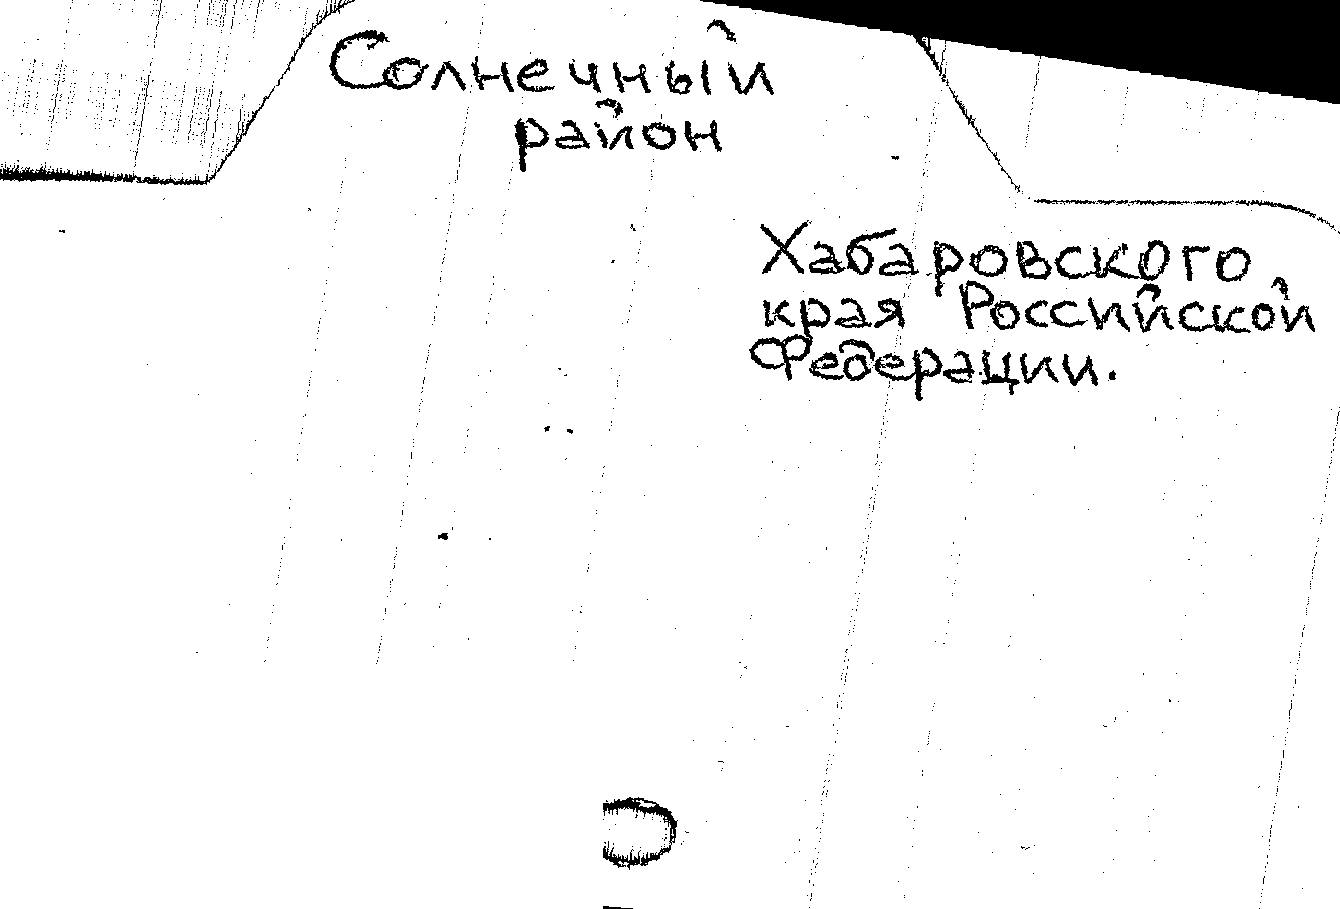 Солнечный
район
Хабаровского
края Российской
Федерации.